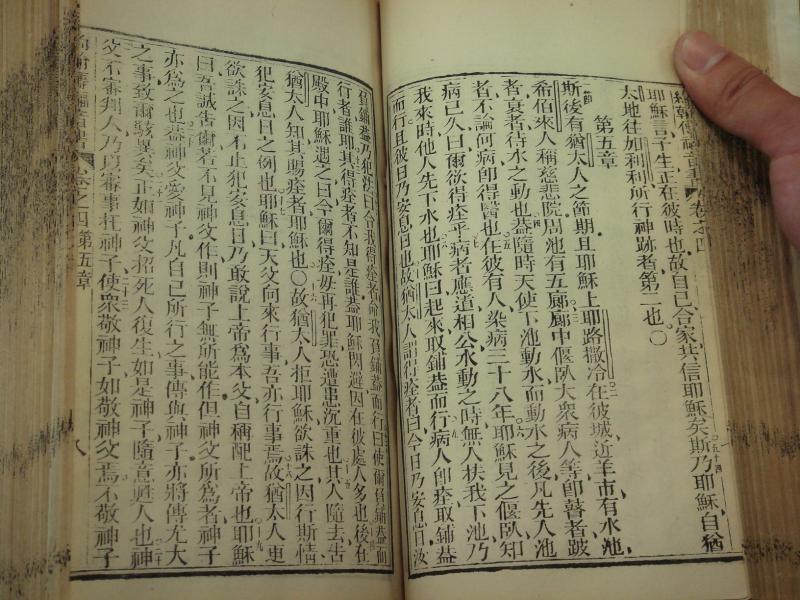 耶穌言子生正在彼時也故自己合家共信耶穌矣斯乃耶穌自猶
太地往加利利所行神跡者第二也〇
第五章
斯後有猶太人之節期且耶穌上耶路撒冷在彼城近羊市有水池
希伯來人稱慈悲院周池有五廊廊中偃臥大衆病人等卽瞽者跛
者衰者待水之動也蓋隨時天使下池動水而動水之後凡先入池
者不論何病卽得醫也在彼有人染病三十八年耶穌見之偃臥知
病已久曰爾欲得痊乎病者應道相公水動之時無人扶我下池乃
我來時他人先下水也耶穌曰起來取鋪蓋而行病人卽痊取鋪蓋
而行且彼日乃安息日也故猶太人謂得痊者曰今日乃安息日汝
負鋪蓋乃犯法曰令我得痊者命我負鋪蓋而行曰使爾負鋪蓋而
行者誰耶其得痊者不知是誰蓋耶穌閃避因在彼處人多也後在
殿中耶穌遇之曰今爾得痊毋再犯罪恐遭患沉重也其人隨去告
猶太人知其賜痊者耶穌也〇故猶太人拒耶穌欲誅之因行斯情
犯安息日之例也耶穌曰天父向來行事吾亦行事焉故猶太人更
欲誅之因不止犯安息日乃敢說上帝爲本父自稱配上帝也耶穌
曰吾誠告爾若不見神父作則神子無所能作但神父所爲者神子
亦爲之也蓋神父愛神子凡自己所行之事傳與神子亦將傳尤大
之事致爾駭異矣正如神父招死人復生如是神子隨意甦人也神
父不審判人乃以審事托神子使衆敬神子如敬神父焉不敬神子
卷之四 第五章
八